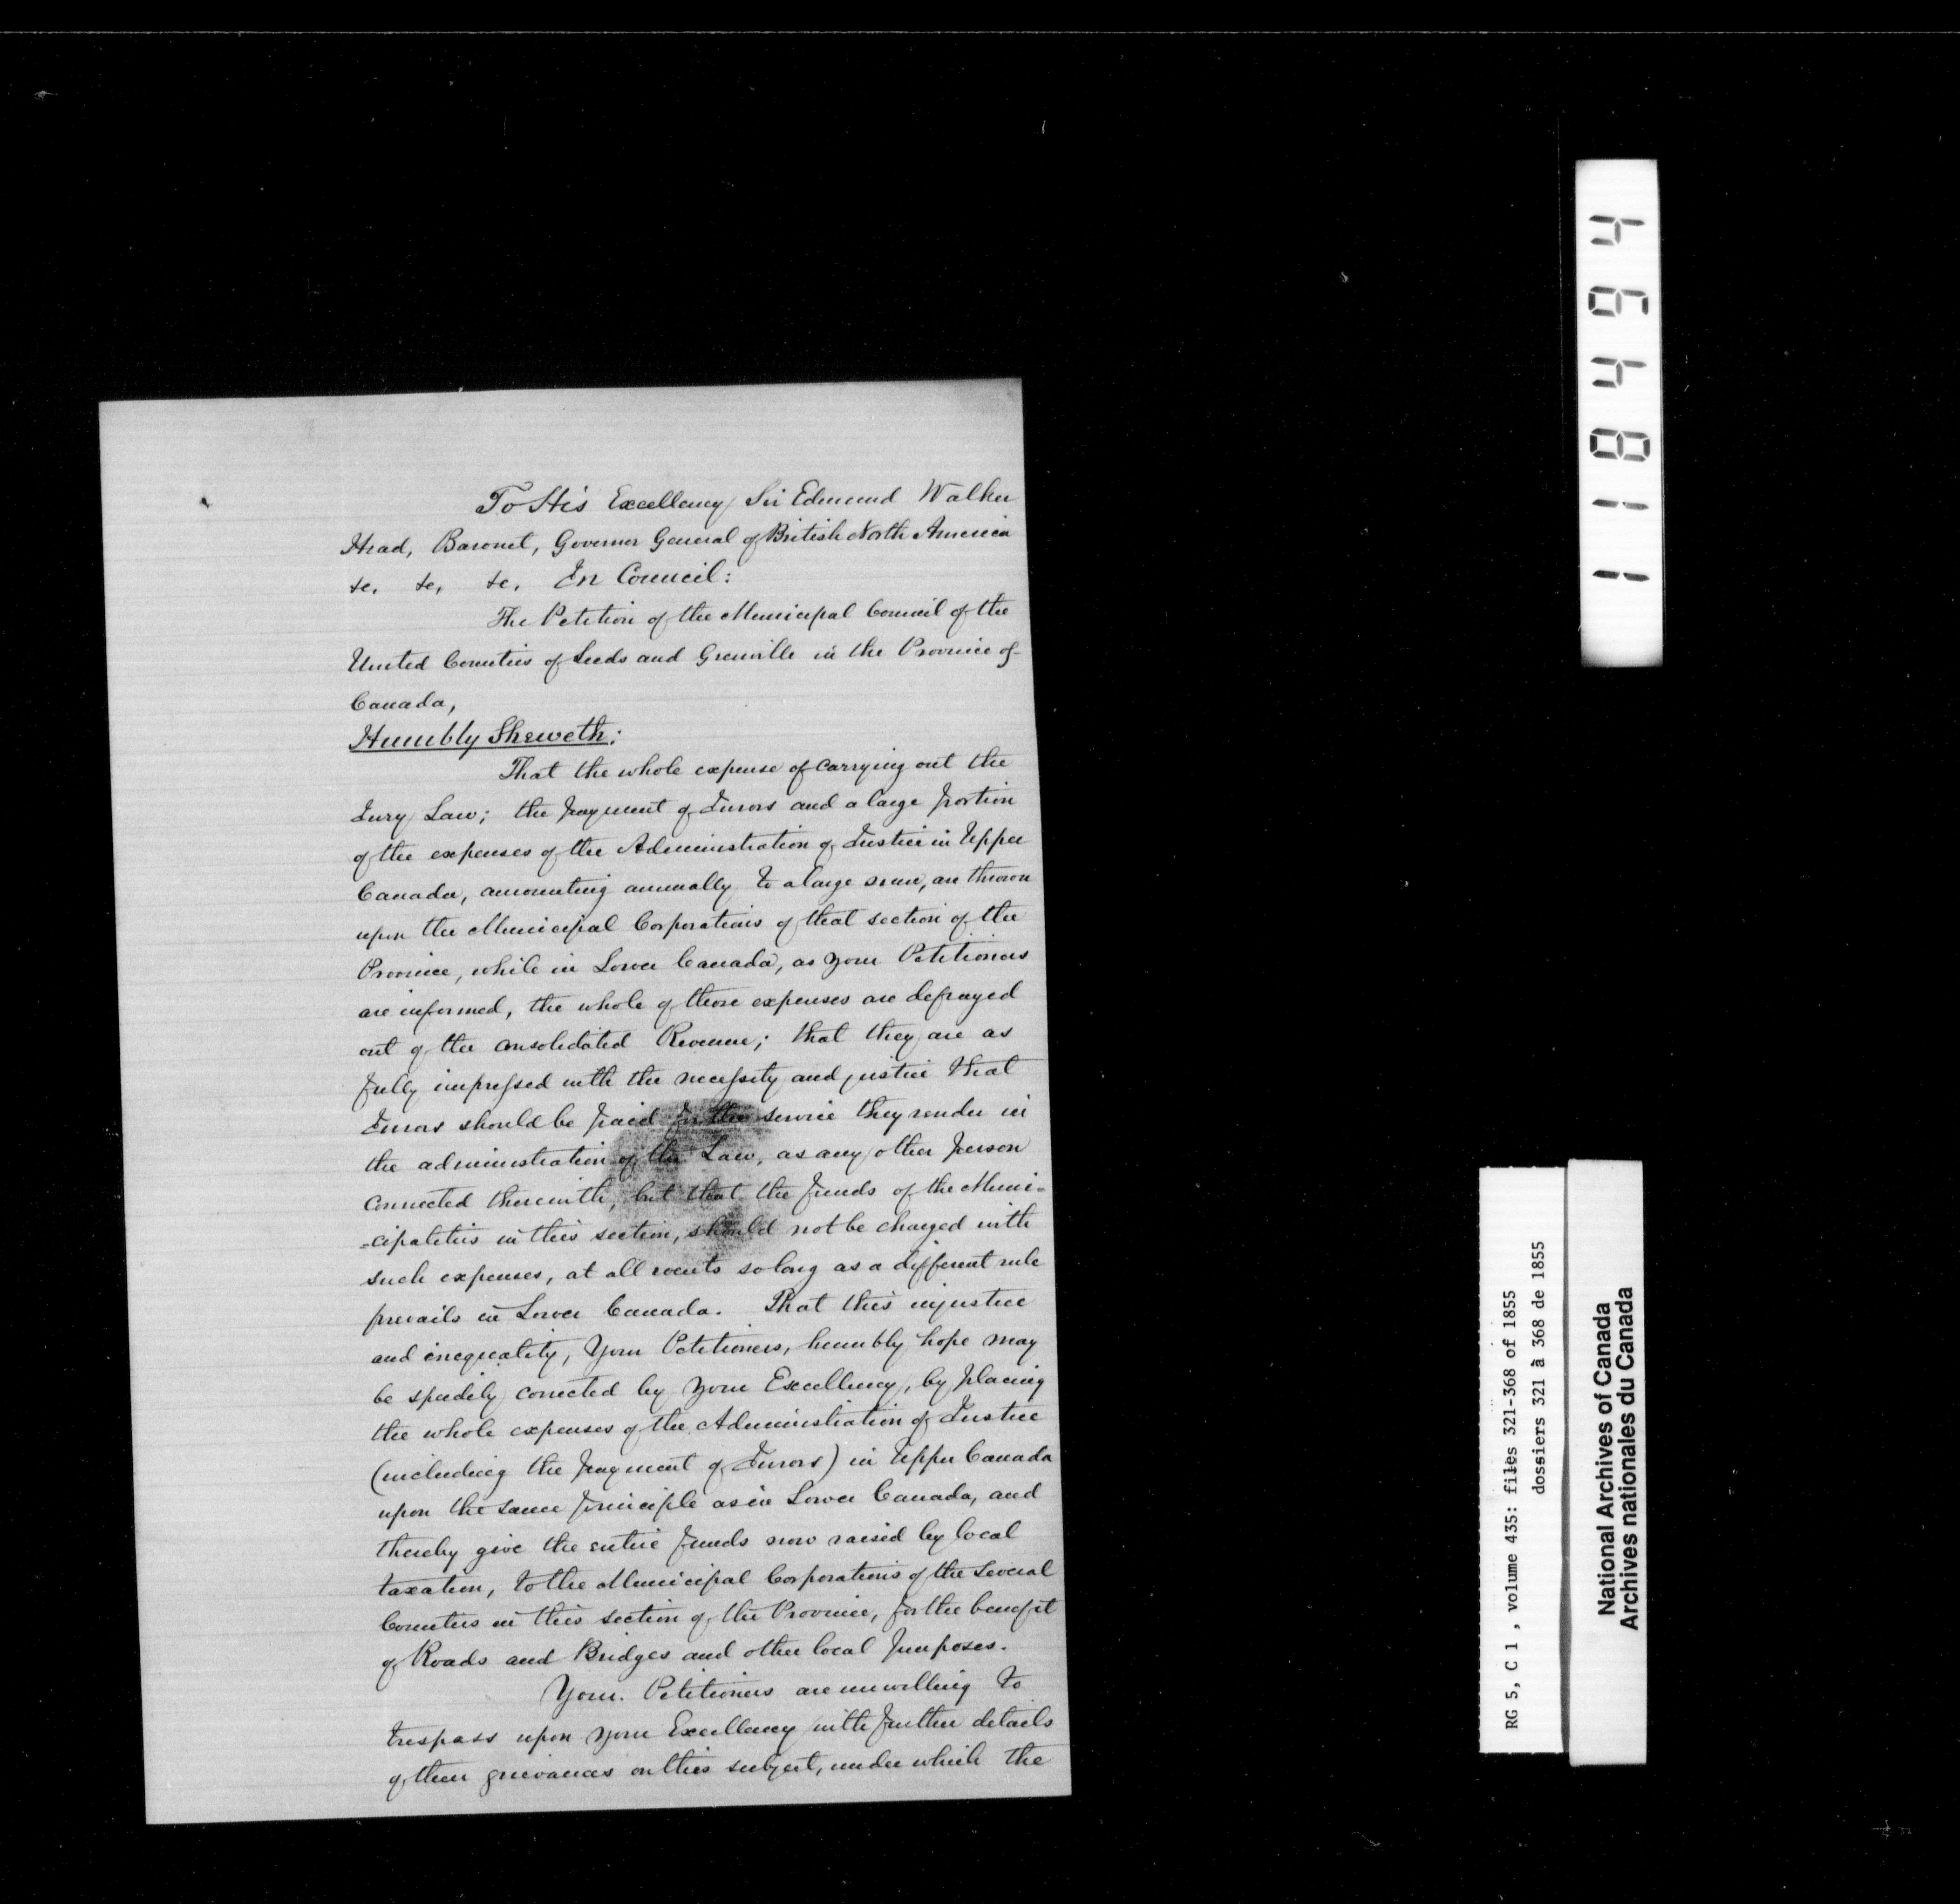 To His Excellency Sir Edmund Walker
Head, Baronet, Governor General of British North America
&c, &c, &c, In Council:
The Petition of the Municipal Council of the
United Counties of Leeds and Grenville in the Province of
Canada,
Humbly Sheweth:
That the whole expense of carrying out the
Jury Law; the payment of Jurors and a large portion
of the expenses of the Administration of Justice in Upper
Canada, amounting annually to a large sum, are thrown
upon the Municipal Corporations of that section of the
Province, while in Lower Canada, as your Petitioners
are informed, the whole of those expenses are defrayed
out of the consolidated Revenue; that they are as
fully impressed with the necessity and justice that
Jurors should be paid for the service they render in
the administration of the Law, as any other person
connected therewith, but that the funds of the Muni=
=cipalities in this section, should not be charged with
such expenses, at all events so long as a different rule
prevails in Lower Canada. That this injustice
and inequality, Your Petitioners, humbly hope may
be speedily corrected by Your Excellency, by placing
the whole expenses of the Administration of Justice
(including the payment of Jurors) in Upper Canada
upon the same principle as in Lower Canada, and
thereby give the entire funds now raised by local
taxation, to the Municipal Corporations of the several
Counties in this section of the Province, for the benefit
of Roads and Bridges and other local purposes.
Your Petitioners are unwilling to
trespass upon your Excellency with further details
of their grievances on this subject, under which the
118494
RG 5, C 1, volume 435: files 321-368 of 1855
dossiers 321 à 368 de 1855
National Archives of Canada
Archives nationales du Canada